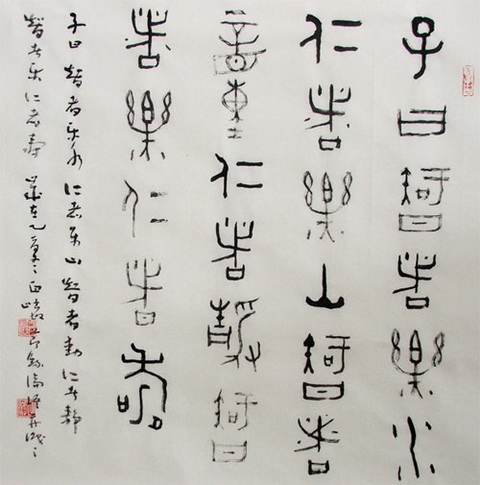 子曰智者樂水
仁者樂山智者
動仁者靜智
者樂仁者壽
子曰智者乐水仁者乐山智者動仁者靜
智者乐仁者寿